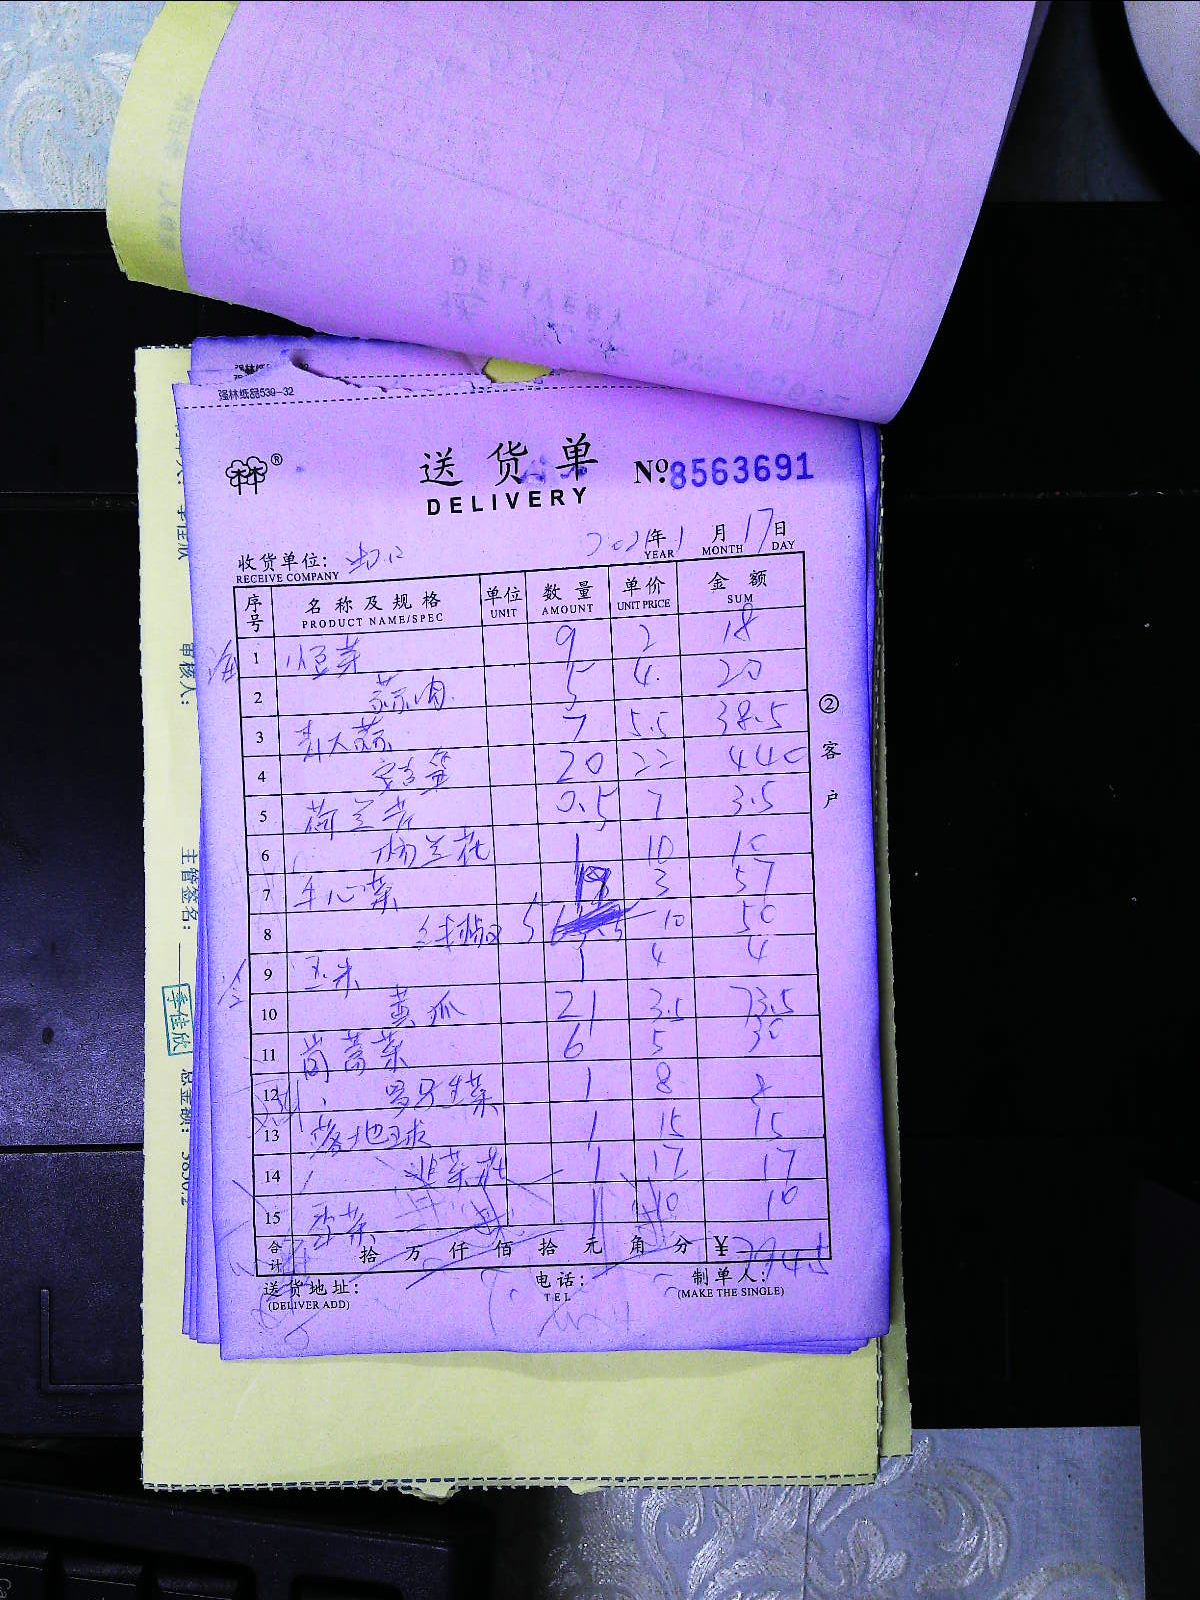 强林纸品539-32
送货单 №8563691
DELIVERY
2021年1月17日
YEAR MONTH DAY
收货单位:
RECEIVE COMPANY
序号 名称及规格 单位 数量 单价 金额
PRODUCT NAME/SPEC UNIT AMOUNT UNIT PRICE SUM
1 小豆芽 9 2 18
2 蒜肉 5 4 20
3 青大蒜 7 5.5 38.5
4 20 22 440
5 荷兰芹 0.5 7 3.5
6 杨兰花 1 10 10
7 手心菜 19 3 57
8 红椒 5 10 50
9 玉米 1 4 4
10 黄瓜 21 3.5 73.5
11 茼蒿菜 6 5 30
12 罗马生菜 1 8 8
13 地球 1 15 15
14 韭菜花 1 17 17
15 1 10 10
合计 拾万仟佰拾元角分 ¥
送货地址: 电话: 制单人:
(DELIVER ADD) TEL (MAKE THE SINGLE)
②客户
审核人:
主管签名:
季佳欣
总金额: